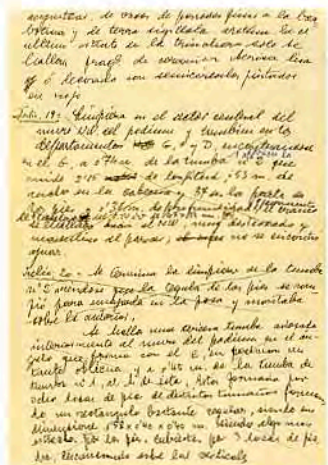 de vasos de paredes finas a la
y de terra sigillata
ultimo estrato de la trinchera solo se
hallan frag. de ceramica iberica lisa
ó decorada con semicirculos pintados
en rojo
Julio, 19 = Limpieza en el sector central del
muro NW del podium y tambien en los
departamentos G, F y D, encontrandose
en el G, a 0'74 m. de la tumba nº 2 que
mide 2'15 de longitud, '53 m. de
ancho en la cabecera y 37 en la parte de
los pies y '36 m. de profundidad. El craneo
hacia el NW, muy destrozado y
masculino al parecer, no se encontró
ajuar.
Julio 20 - Se continua la limpieza de la tumba
nº 2 viendose que la tegula de los pies se rom-
pió para encajarla en la fosa y montaba
sobre la anterior.
Se halla una tercera tumba adosada
interiormente al muro del podium en el an-
gulo que forma con el E, en posicion un
tanto oblicua, y a 0'45 m. de la tumba de
nº 1, al N. de esta, estos formaba por
ocho losas de pie de distintos tamaños forman-
do un rectangulo bastante regular, siendo sus
dimensiones 1'78 x 0'40 x 0'40 m. siendo algo mas
estrecha por los pies, cubierta por 3 losas de pie
dra, descansando sobre las verticales